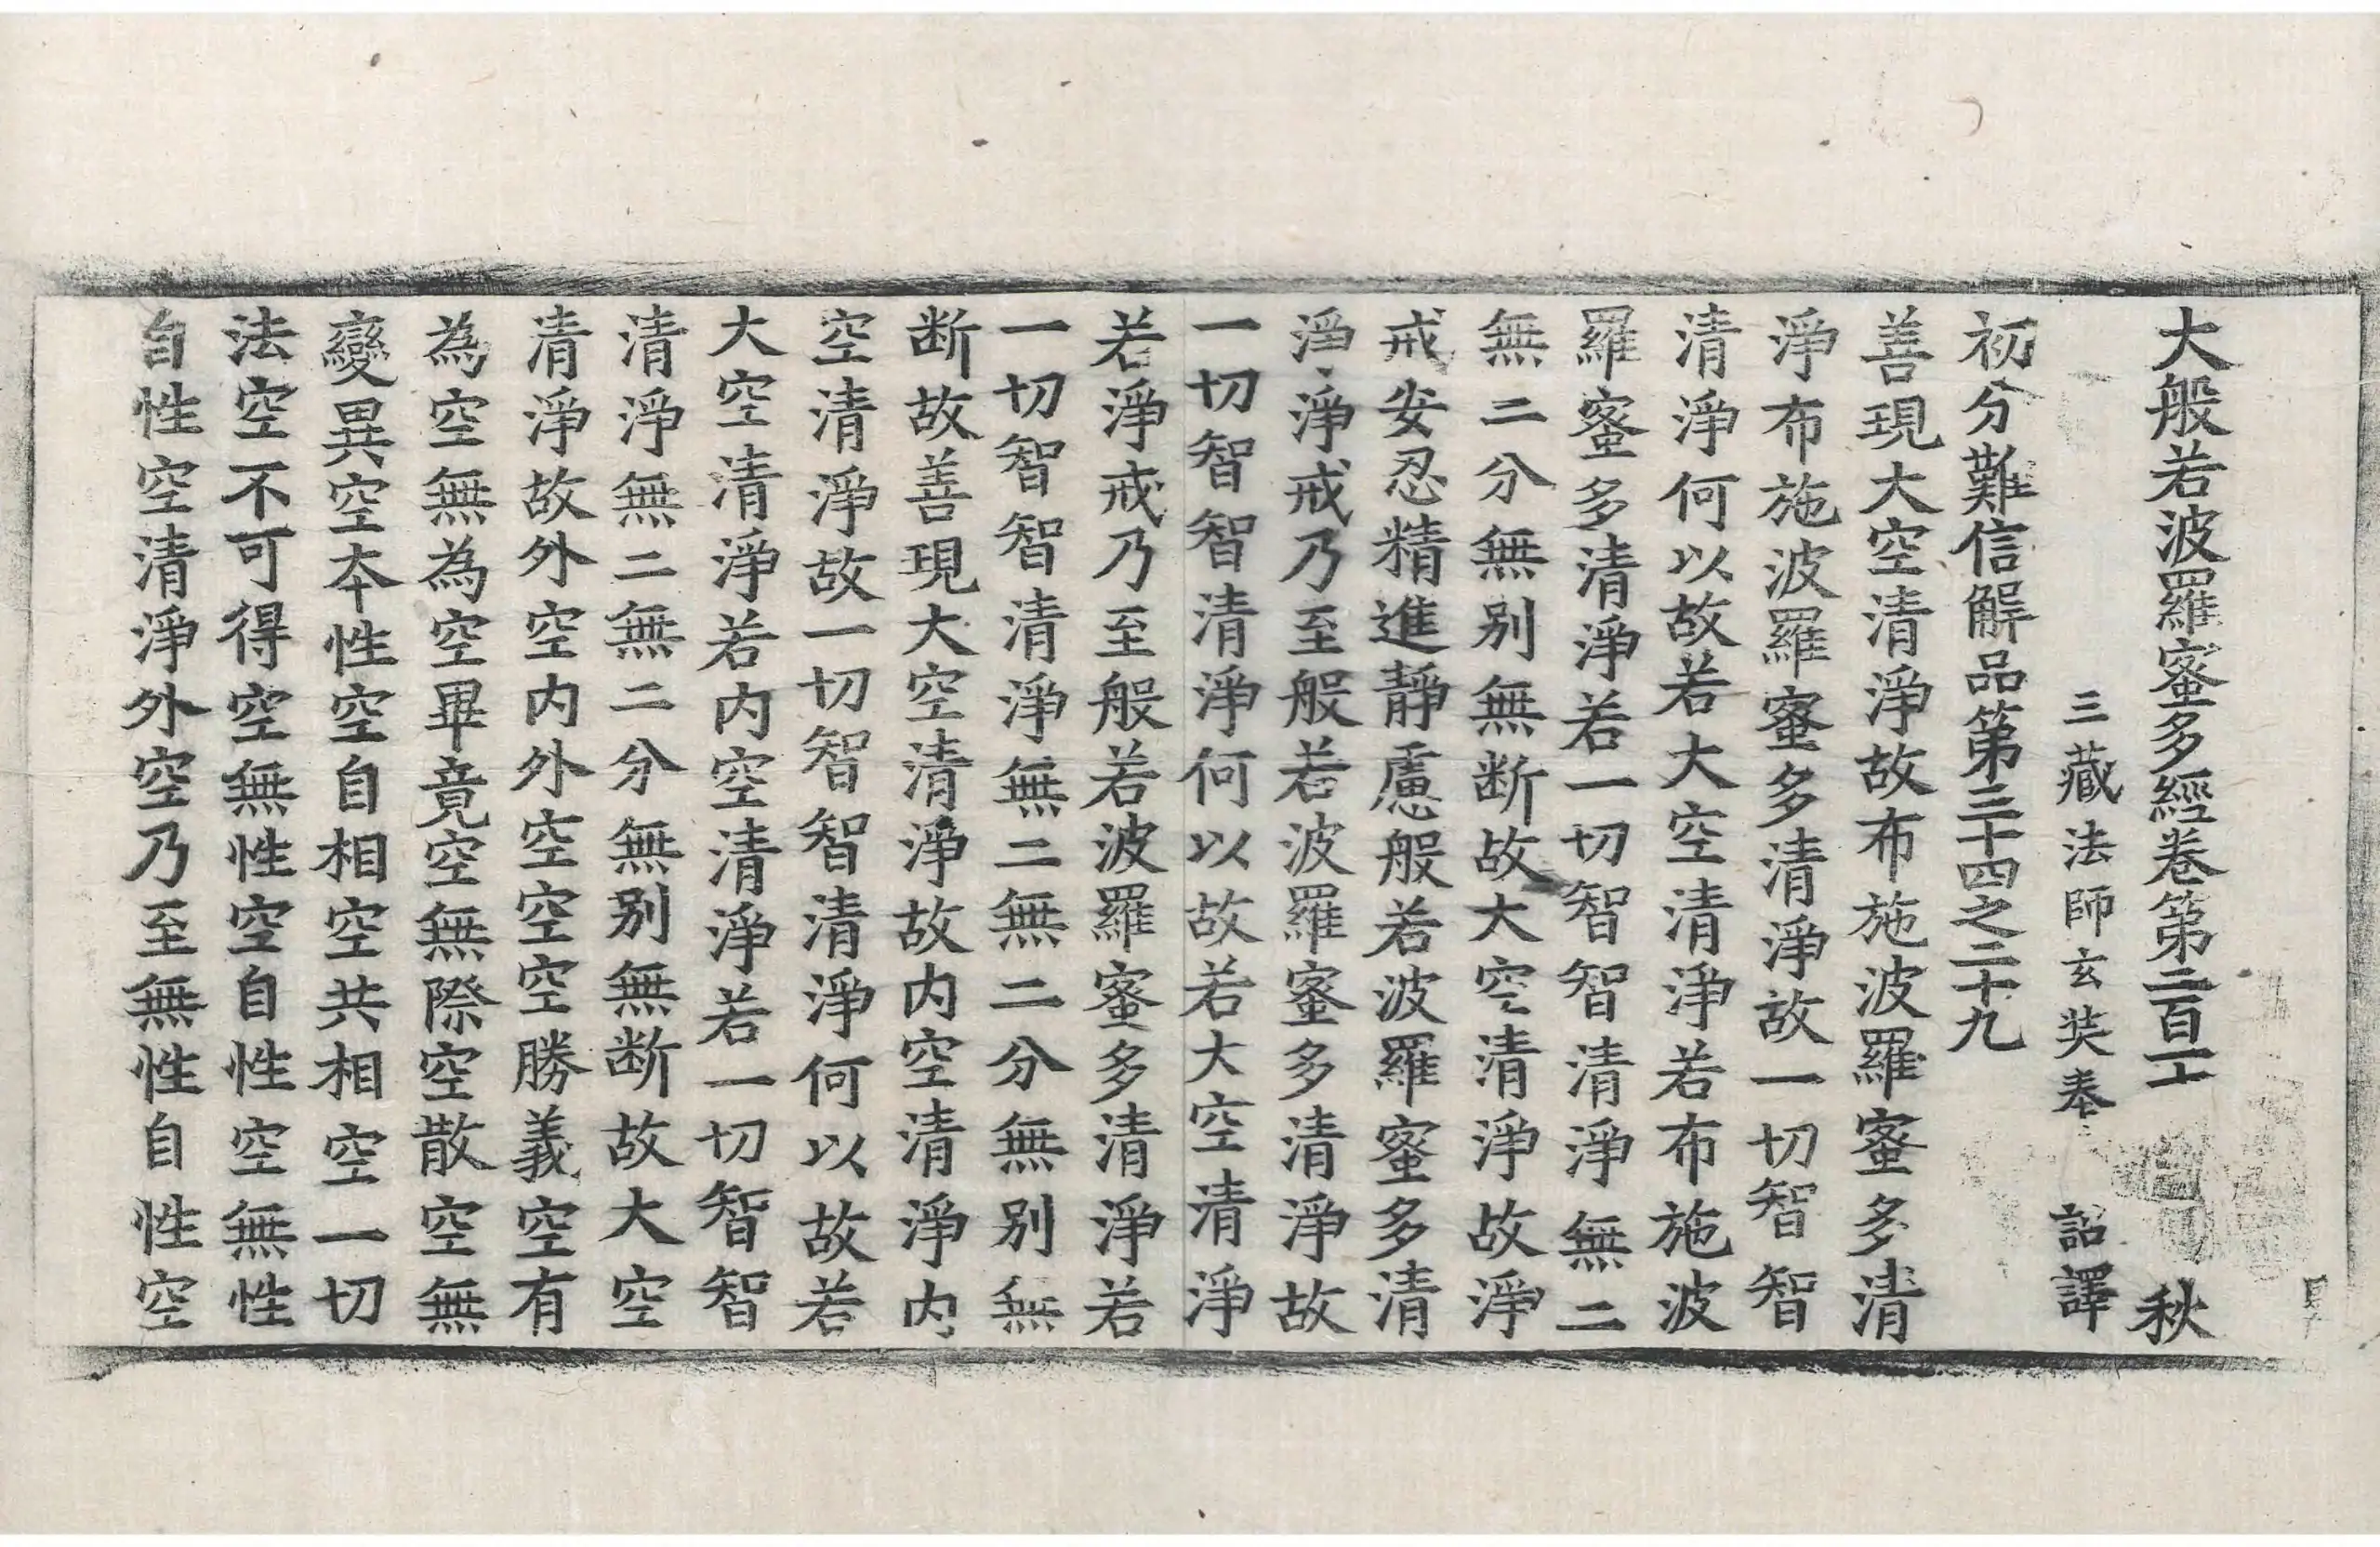 大般若波羅蜜多經卷第二百一十　秋
三藏法師玄奘奉　詔譯
初分難信解品第三十四之二十九
善現大空清淨故布施波羅蜜多清
淨布施波羅蜜多清淨故一切智智
清淨何以故若大空清淨若布施波
羅蜜多清淨若一切智智清淨無二
無二分無別無断故大空清淨故淨
戒安忍精進靜慮般若波羅蜜多清
淨淨戒乃至般若波羅蜜多清淨故
一切智智清淨何以故若大空清淨
若淨戒乃至般若波羅蜜多清淨若
一切智智清淨無二無二分無別無
断故善現大空清淨故内空清淨内
空清淨故一切智智清淨何以故若
大空清淨若内空清淨若一切智智
清淨無二無二分無別無断故大空
清淨故外空内外空空空勝義空有
為空無為空畢竟空無際空散空無
變異空本性空自相空共相空一切
法空不可得空無性空自性空無性
自性空清淨外空乃至無性自性空